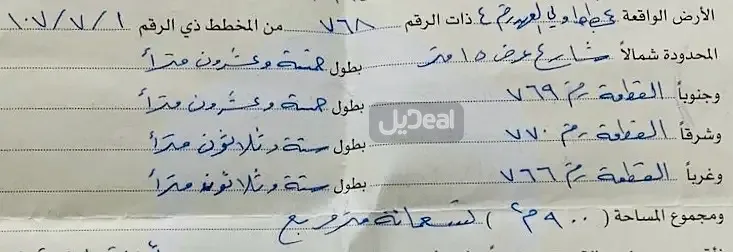 الأرض الواقعة بمخطط ولي العهد رقم ٤ ذات الرقم ٧٦٨ من المخطط ذي الرقم ١٠٧/٧/١
المحدودة شمالاً شارع عرض ١٥ متر بطول خمسة وعشرون متراً
وجنوباً القطعة رقم ٧٦٩ بطول خمسة وعشرون متراً
وشرقاً القطعة رقم ٧٧٠ بطول ستة وثلاثون متراً
وغرباً القطعة رقم ٧٦٦ بطول ستة وثلاثون متراً
ومجموع المساحة ( ٩٠٠ م٢ ) تسعمائة متر مربع
ديل Deal